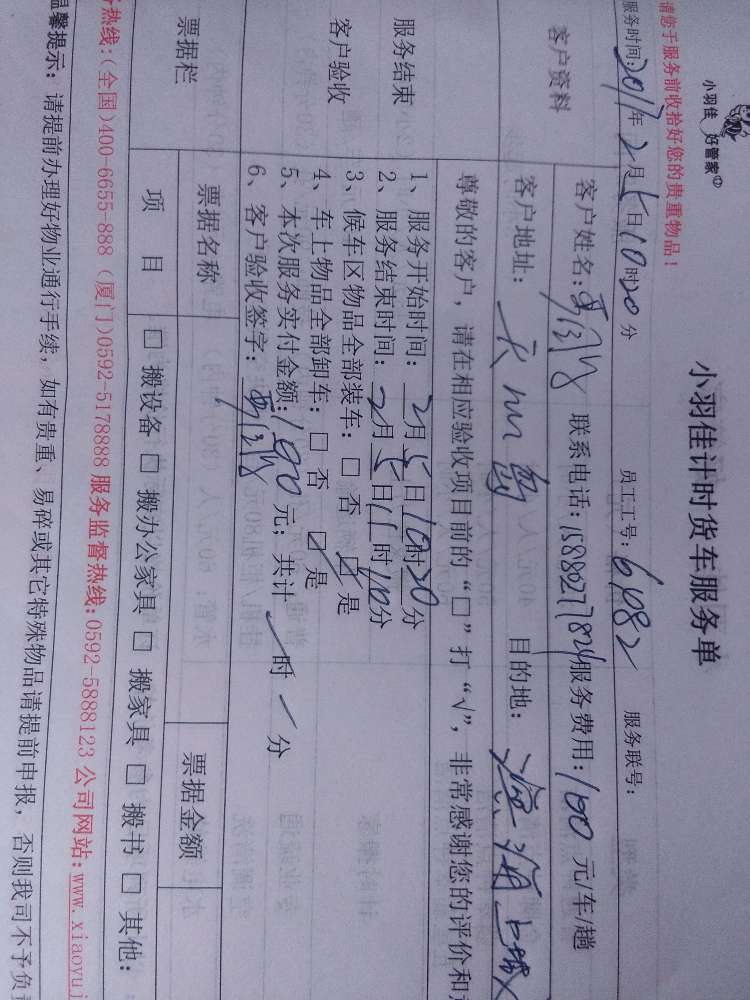 小羽佳 好管家
小羽佳计时货车服务单
请您于服务前收拾好您的贵重物品！
服务时间:2017年2月5日10时20分 员工工号: 6482 服务联号:
客户资料
客户姓名: 联系电话: 服务费用:160元/车/趟
客户地址: 目的地:
尊敬的客户，请在相应验收项目前的“□”打“√”，非常感谢您的评价和
服务结束
客户验收
1、服务开始时间: 2月5日10时20分
2、服务结束时间: 2月5日11时10分
3、候车区物品全部装车: □ 否 ☑ 是
4、车上物品全部卸车: □ 否 ☑ 是
5、本次服务实付金额: 元；共计 时 分
6、客户验收签字:
票据栏
票据名称 票据金额
项 目 □ 搬设备 □ 搬办公家具 □ 搬家具 □ 搬书 □ 其他:
热线:(全国)400-6655-888 (厦门)0592-5178888 服务监督热线:0592-5888123 公司网站:www.xiaoyuj
温馨提示: 请提前办理好物业通行手续, 如有贵重、易碎或其它特殊物品请提前申报, 否则我司不予负